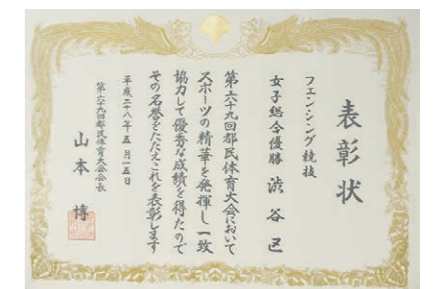 表彰状
フェンシング競技
女子総合優勝 渋谷区
第六十九回都民体育大会において
スポーツの精華を発揮し一致
協力して優秀な成績を得たので
その名誉をたたえこれを表彰します
平成二十八年五月一五日
第六十九回都民体育大会会長
山本 博